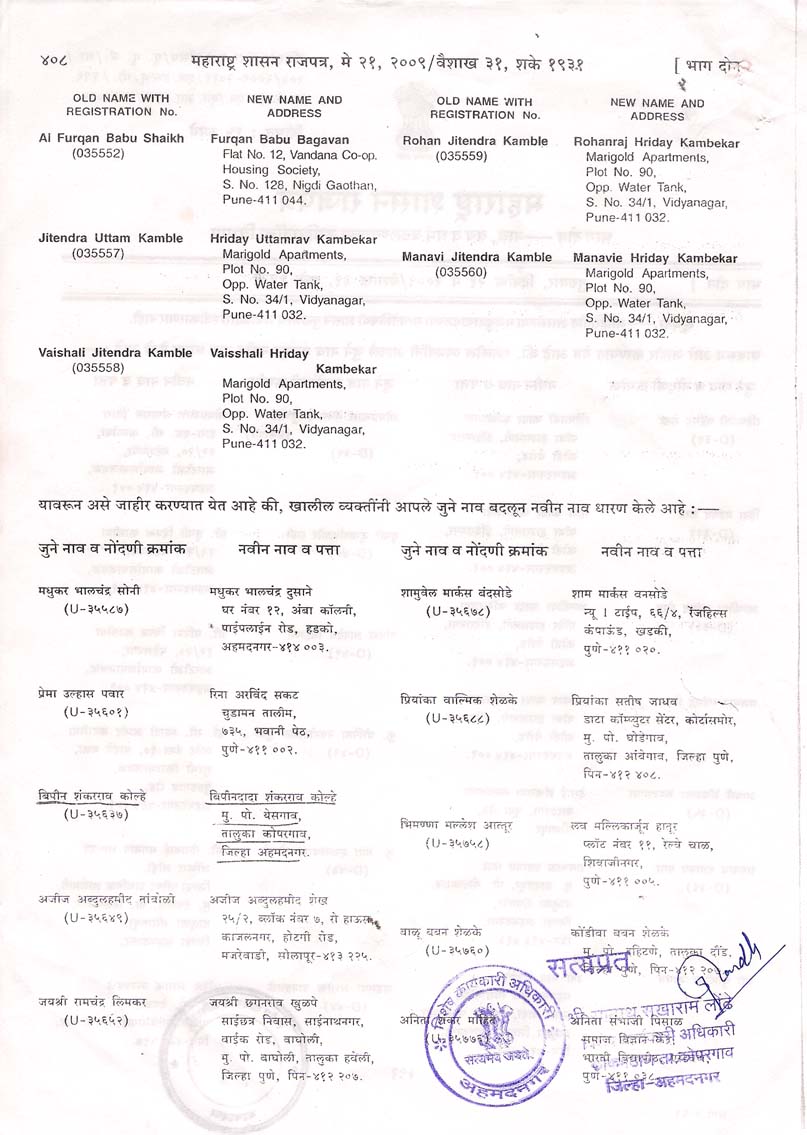 ४०८ महाराष्ट्र शासन राजपत्र, मे २१, २००९/वैशाख ३१, शके १९३१ [ भाग दोन
OLD NAME WITH
REGISTRATION No.
NEW NAME AND
ADDRESS
Al Furqan Babu Shaikh
(035552)
Furqan Babu Bagavan
Flat No. 12, Vandana Co-op.
Housing Society,
S. No. 128, Nigdi Gaothan,
Pune-411 044.
Jitendra Uttam Kamble
(035557)
Hriday Uttamrav Kambekar
Marigold Apartments,
Plot No. 90,
Opp. Water Tank,
S. No. 34/1, Vidyanagar,
Pune-411 032.
Vaishali Jitendra Kamble
(035558)
Vaisshali Hriday
Kambekar
Marigold Apartments,
Plot No. 90,
Opp. Water Tank,
S. No. 34/1, Vidyanagar,
Pune-411 032.
OLD NAME WITH
REGISTRATION No.
NEW NAME AND
ADDRESS
Rohan Jitendra Kamble
(035559)
Rohanraj Hriday Kambekar
Marigold Apartments,
Plot No. 90,
Opp. Water Tank,
S. No. 34/1, Vidyanagar,
Pune-411 032.
Manavi Jitendra Kamble
(035560)
Manavie Hriday Kambekar
Marigold Apartments,
Plot No. 90,
Opp. Water Tank,
S. No. 34/1, Vidyanagar,
Pune-411 032.
यावरून असे जाहीर करण्यात येत आहे की, खालील व्यक्तींनी आपले जुने नाव बदलून नवीन नाव धारण केले आहे :—
जुने नाव व नोंदणी क्रमांक
नवीन नाव व पत्ता
मधुकर भालचंद्र सोनी
(U-३५५८७)
मधुकर भालचंद्र दुसाने
घर नंबर १२, अंबा कॉलनी,
पाईपलाईन रोड, हडको,
अहमदनगर-४१४ ००३.
प्रेमा उल्हास पवार
(U-३५६०१)
रिना अरविंद सकट
चुडामन तालीम,
७३५, भवानी पेठ,
पुणे-४११ ००२.
बिपीन शंकरराव कोल्हे
(U-३५६३७)
बिपीनदादा शंकरराव कोल्हे
मु. पो. येसगाव,
तालुका कोपरगाव,
जिल्हा अहमदनगर.
अजीज अब्दुलहमीद तांबोळी
(U-३५६४९)
अजीज अब्दुलहमीद शेख
२५/२, ब्लॉक नंबर ७, रो हाऊस,
काजलनगर, होटगी रोड,
मजरेवाडी, सोलापूर-४१३ २२५.
जयश्री रामचंद्र लिमकर
(U-३५६५२)
जयश्री छगनराव खुळपे
साईछत्र निवास, साईनाथनगर,
वार्डक रोड, वाघोली,
मु. पो. वाघोली, तालुका हवेली,
जिल्हा पुणे, पिन-४१२ २०७.
जुने नाव व नोंदणी क्रमांक
नवीन नाव व पत्ता
शामुवेल मार्कस बंदसोडे
(U-३५६७८)
शाम मार्कस वनसोडे
न्यू । टाईप, ६६/४, रेंजहिल्स
कंपाऊंड, खडकी,
पुणे-४११ ०२०.
प्रियांका वाल्मिक शेळके
(U-३५६८८)
प्रियांका सतीष जाधव
डाटा कॉम्प्युटर सेंटर, कोर्टासमोर,
मु. पो. घोडेगाव,
तालुका आंबेगाव, जिल्हा पुणे,
पिन-४१२ ४०८.
भिमण्णा मल्लेश आत्तूर
(U-३५७५८)
लव मल्लिकार्जून हातूर
प्लॉट नंबर ११, रेल्वे चाळ,
शिवाजीनगर,
पुणे-४११ ००५.
वाळू बबन शेळके
(U-३५७६०)
कोंडीबा बबन शेळके
मु. पो. तालुका दौंड,
जिल्हा पुणे, पिन-४१२
अनिता शंकर मोहिते
(U-३५७७६)
अनिता संभाजी पिसाळ
समाज विज्ञान केंद्र
भारती विद्यापीठ
पुणे-४११ ०३८.
सत्यप्रत
सखाराम लोंढे
कारी अधिकारी
कोपरगाव
जिल्हा-अहमदनगर
विशेष कार्यकारी अधिकारी
सत्यमेव जयते
अहमदनगर